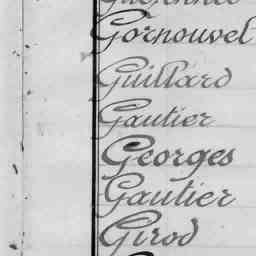 Gornouvel
Guillard
Gautier
Georges
Gautier
Girod